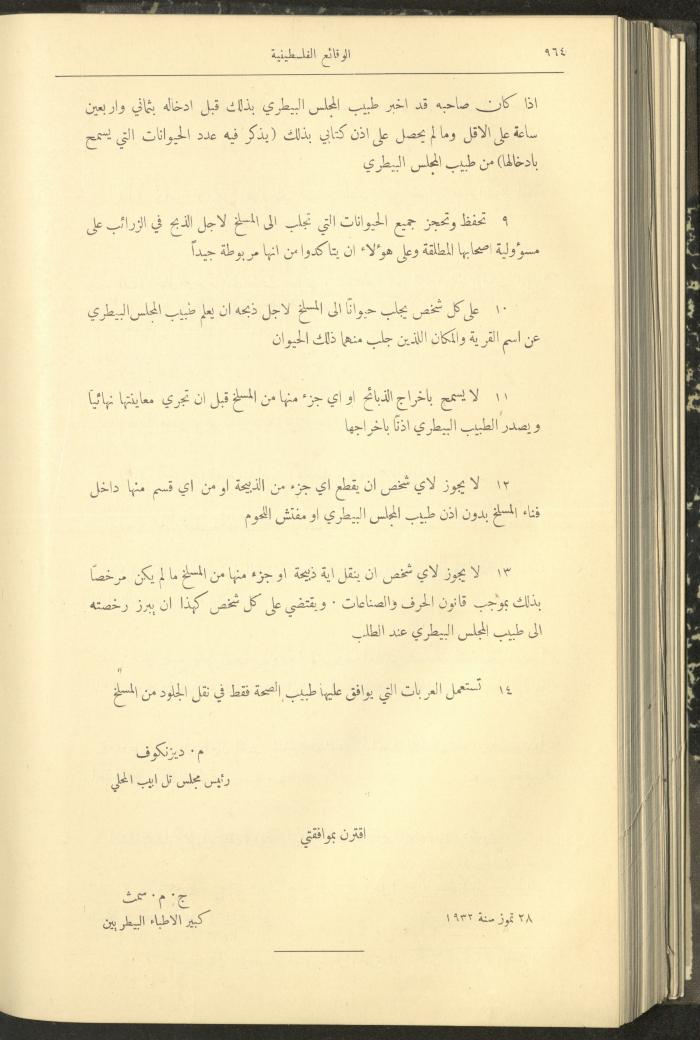 ٩٦٤
الوقائع الفلسطينية
اذا كان صاحبه قد اخبر طبيب المجلس البيطري بذلك قبل ادخاله بثماني واربعين
ساعة على الاقل وما لم يحصل على اذن كتابي بذلك (يذكر فيه عدد الحيوانات التي يسمح
بادخالها) من طبيب المجلس البيطري
٩ تحفظ وتحجز جميع الحيوانات التي تجلب الى المسلخ لاجل الذبح في الزرائب على
مسؤولية اصحابها المطلقة وعلى هوٴلاء ان يتاكدوا من انها مربوطة جيداً
١٠ على كل شخص يجلب حيوانًا الى المسلخ لاجل ذبحه ان يعلم طبيب المجلس البيطري
عن اسم القرية والمكان اللذين جلب منهما ذلك الحيوان
١١ لا يسمح باخراج الذبائح او اي جزء منها من المسلخ قبل ان تجري معاينتها نهائيًا
ويصدر الطبيب البيطري اذنًا باخراجها
١٢ لا يجوز لاي شخص ان يقطع اي جزء من الذبيحة او من اي قسم منها داخل
فناء المسلخ بدون اذن طبيب المجلس البيطري او مفتش اللحوم
١٣ لا يجوز لاي شخص ان ينقل اية ذبيحة او جزء منها من المسلخ ما لم يكن مرخصًا
بذلك بموجب قانون الحرف والصناعات . ويقتضي على كل شخص كهذا ان يبرز رخصته
الى طبيب المجلس البيطري عند الطلب
١٤ تستعمل العربات التي يوافق عليها طبيب الصحة فقط في نقل الجلود من المسلخ
م . ديزنكوف
رئيس مجلس تل ابيب المحلي
اقترن بموافقتي
ج . م . سمث
٢٨ تموز سنة ١٩٣٢
كبير الاطباء البيطريين